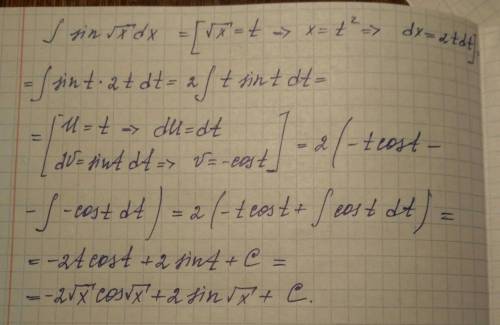 ∫ sin √x dx = [√x = t => x = t² => dx = 2t dt] =
= ∫ sin t · 2t dt = 2 ∫ t sin t dt =
= [U = t => dU = dt
dV = sin t dt => V = -cos t] = 2 (-t cos t -
- ∫ -cos t dt) = 2 (-t cos t + ∫ cos t dt) =
= -2t cos t + 2 sin t + C =
= -2√x cos √x + 2 sin √x + C.